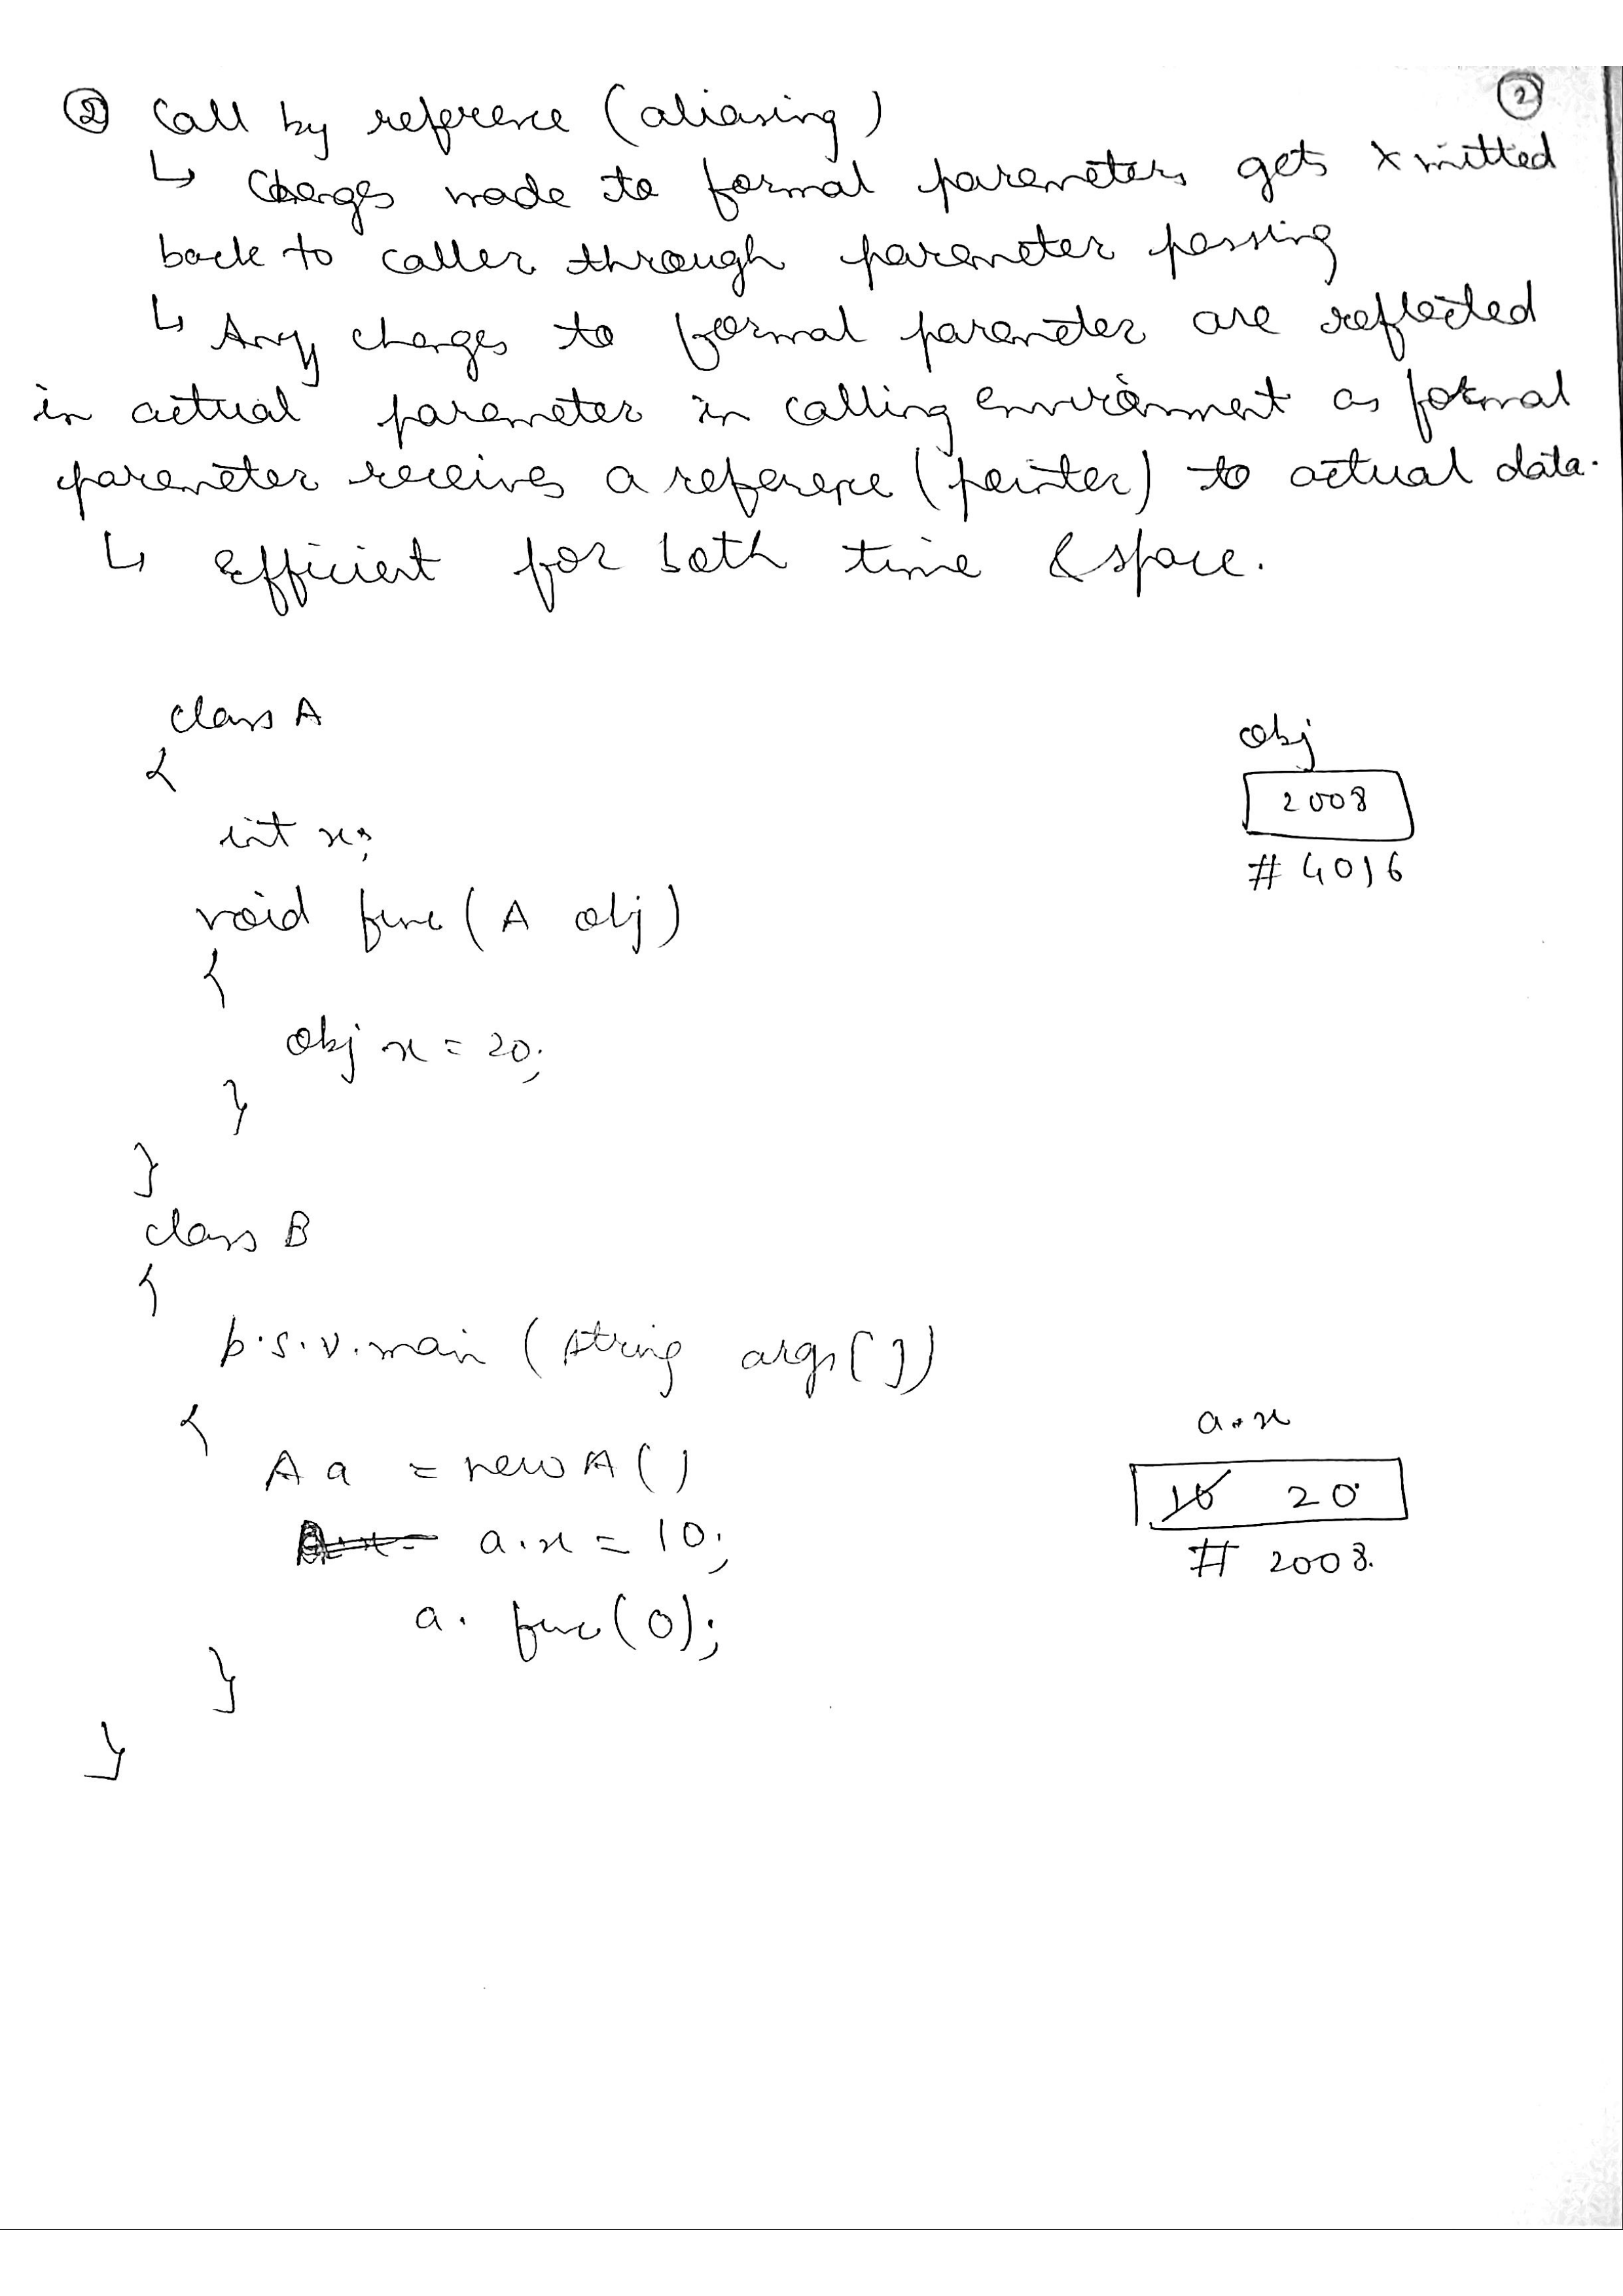 ②
② Call by reference (aliasing)
↳ Changes made to formal parameters gets xmitted
back to caller through parameter passing
↳ Any changes to formal parameter are reflected
in actual parameter in calling environment as formal
parameter receives a reference (pointer) to actual data.
↳ Efficient for both time & space.
class A
{
obj
2008
#4016
int x;
void func(A obj)
{
obj x = 20;
}
}
class B
{
p.s.v.main (String args[])
{
A a = new A()
a.x = 10;
a.func(0);
a.x
10 20
# 2008.
}
}